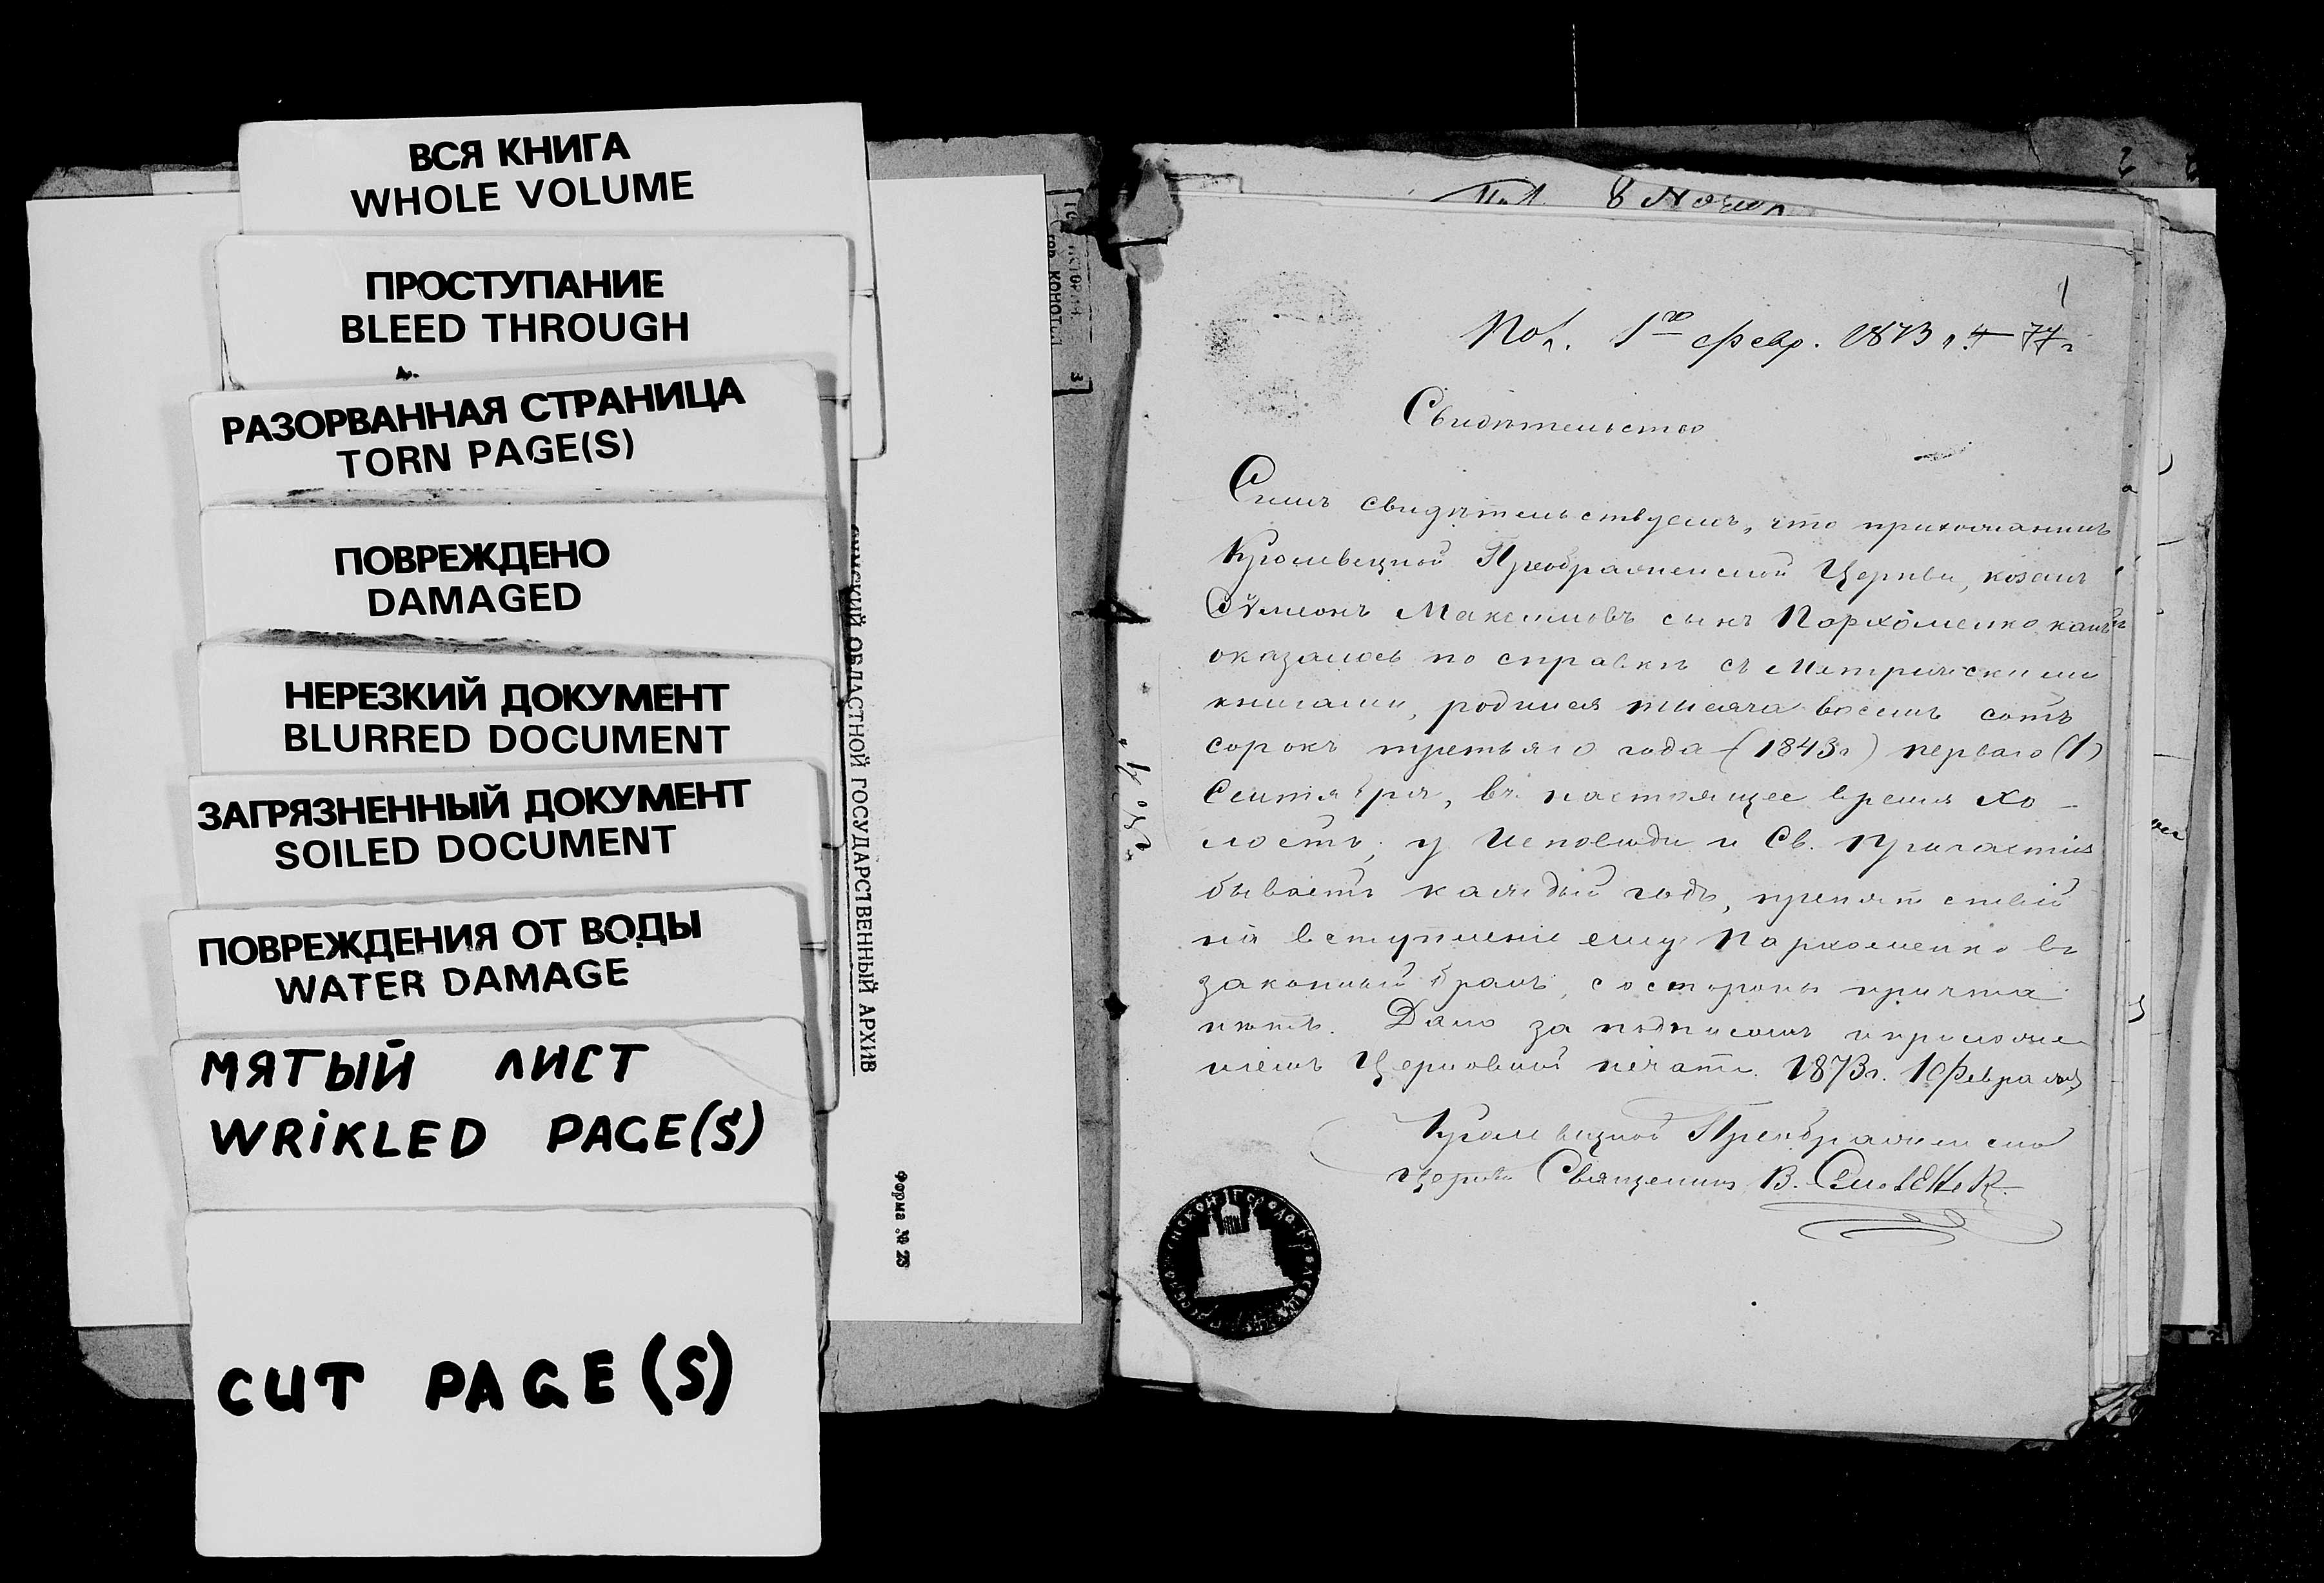 ВСЯ КНИГА
WHOLE VOLUME
ПРОСТУПАНИЕ
BLEED THROUGH
РАЗОРВАННАЯ СТРАНИЦА
TORN PAGE(S)
ПОВРЕЖДЕНО
DAMAGED
НЕРЕЗКИЙ ДОКУМЕНТ
BLURRED DOCUMENT
ЗАГРЯЗНЕННЫЙ ДОКУМЕНТ
SOILED DOCUMENT
ПОВРЕЖДЕНИЯ ОТ ВОДЫ
WATER DAMAGE
МЯТЫЙ ЛИСТ
WRIKLED PAGE(S)
CUT PAGE(S)
СУМСКИЙ ОБЛАСТНОЙ ГОСУДАРСТВЕННЫЙ АРХИВ
Форма № 25
Пол. 1го февр. 1873
Свидѣтельство
Симъ свидѣтельствуемъ, что прихожанинъ
Кролевецкой Преображенской Церкви, козакъ
Сѵмеонъ Максимовъ сынъ Пархоменко, какъ
оказалось по справкѣ съ Метрическими
книгами, родился тысяча восемь сотъ
сорокъ третьяго года (1843г) перваго (1)
Сентября, въ настоящее время хо-
лостъ; у Исповѣди и Св. Причастія
бываетъ каждый годъ, препятствій
на вступленіе ему Пархоменко въ
законный бракъ, со стороны причта
нѣтъ. Дано за подписомъ и приложе
ніемъ Церковной печати 1873г. 1 Февраля
Кролевецкой Преображенской
церкви Священникъ В.